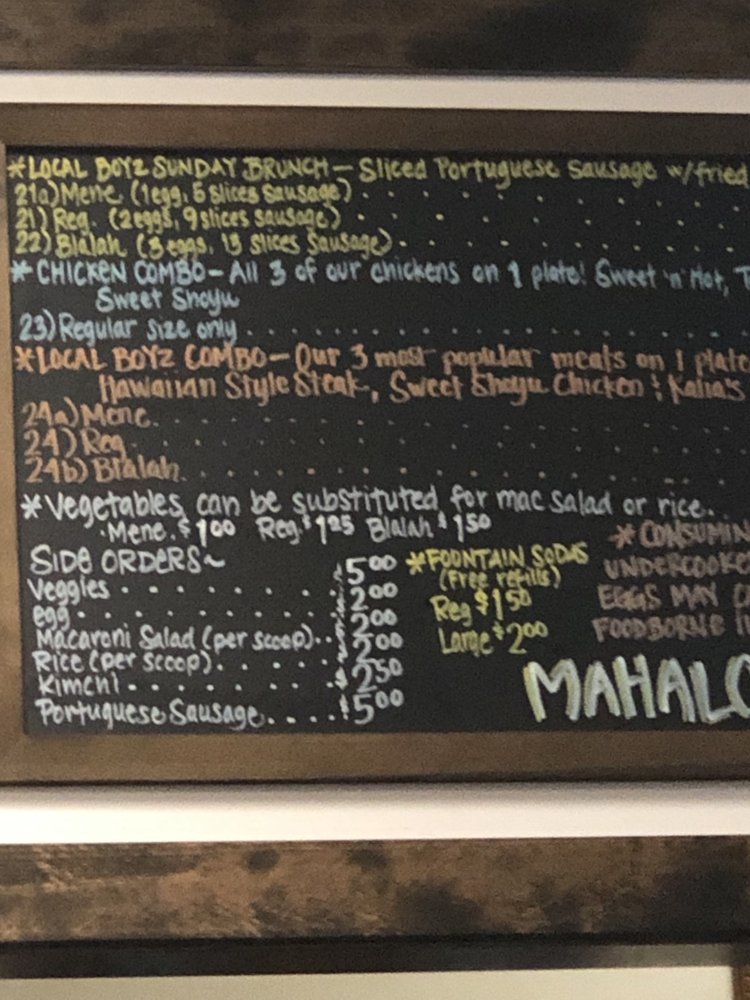 *LOCAL BOYZ SUNDAY BRUNCH - Sliced Portuguese Sausage w/fried
21a) Mene (1 egg, 6 slices sausage)
21) Reg. (2 eggs, 9 slices sausage)
22) Blalah (3 eggs, 13 slices sausage)
*CHICKEN COMBO - All 3 of our chickens on 1 plate! Sweet 'n' Hot, T
Sweet Shoyu
23) Regular size only
*LOCAL BOYZ COMBO - Our 3 most popular meats on 1 plate
Hawaiian Style Steak, Sweet Shoyu Chicken & Kalua's
24a) Mene
24) Reg.
24b) Blalah
*Vegetables can be substituted for mac salad or rice..
Mene. $1.00 Reg. $1.25 Blalah $1.50
SIDE ORDERS~
Veggies 5.00
egg 2.00
Macaroni Salad (per scoop) 2.00
Rice (per scoop) 2.00
Kimchi $2.50
Portuguese Sausage $5.00
*FOUNTAIN SODAS
(Free refills)
Reg $1.50
Large $2.00
*CONSUMIN
UNDERCOOKE
EGGS MAY
FOODBORNE
MAHALO